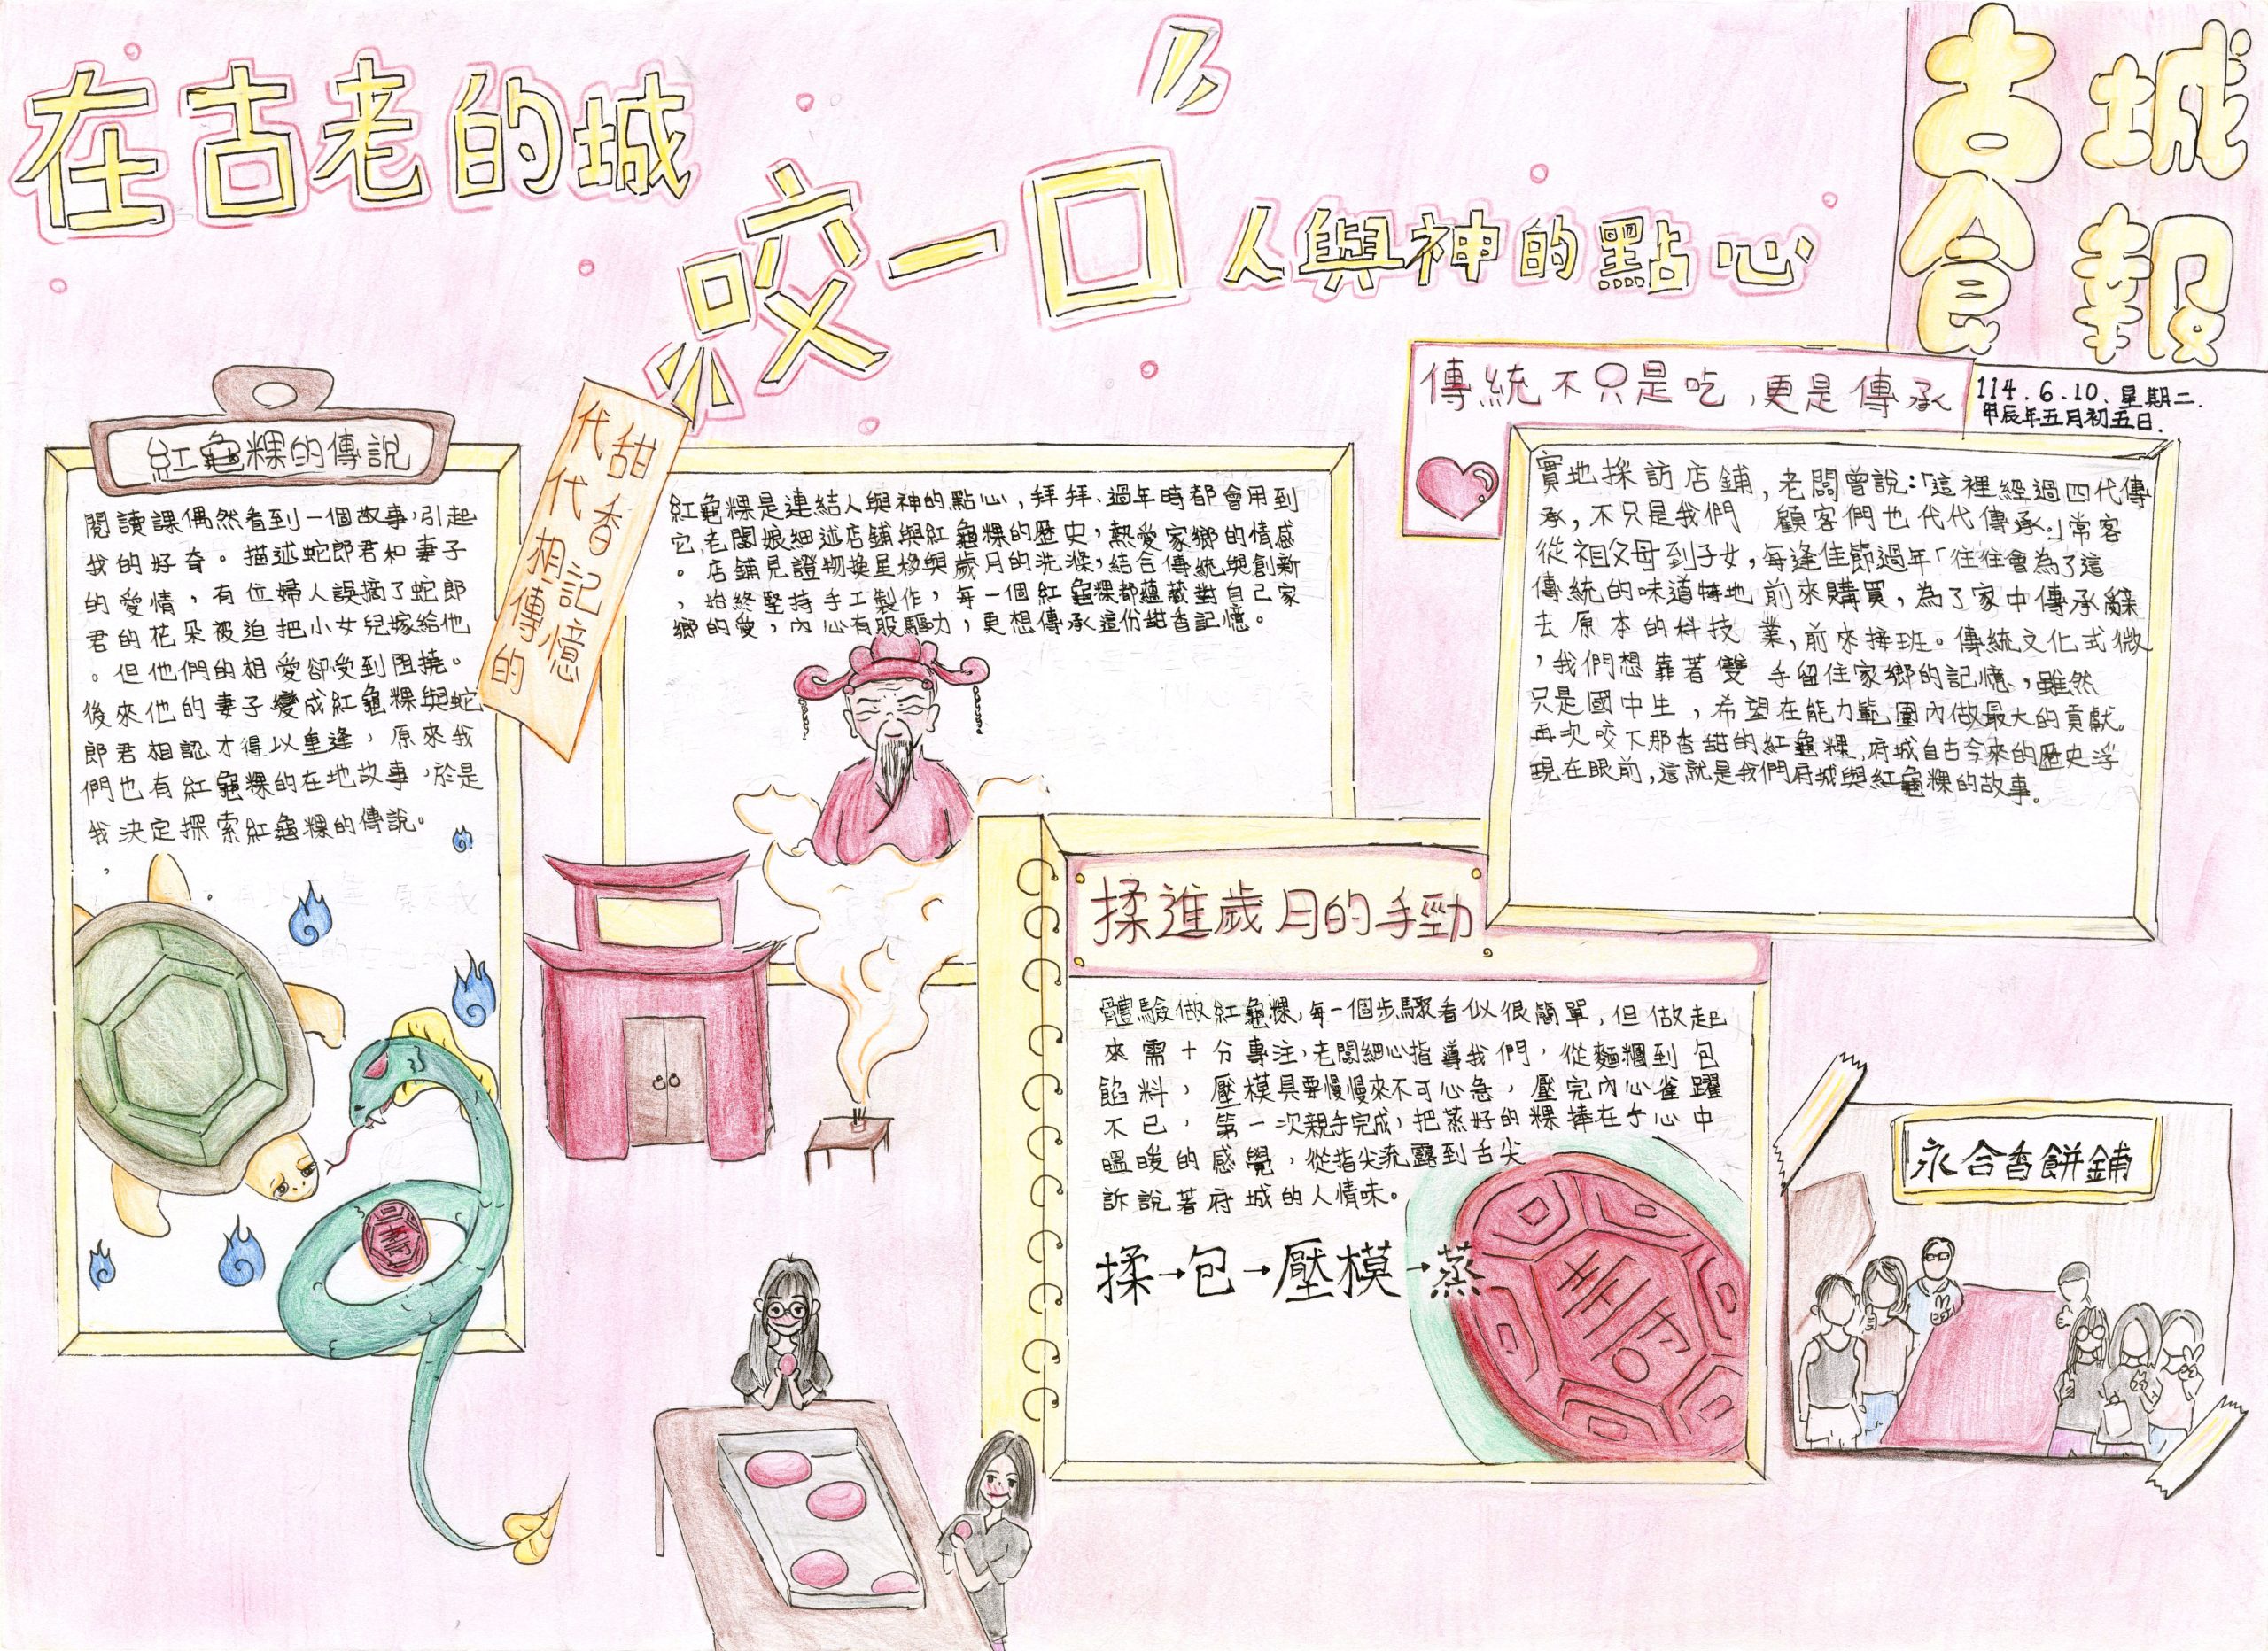 古城
食報
114.6.10.星期二.
甲辰年五月初五日.
在古老的城
咬一口
人與神的點心
紅龜粿的傳說
閱讀課偶然看到一個故事,引起
我的好奇。描述蛇郎君和妻子
的愛情，有位婦人誤摘了蛇郎
君的花朵被迫把小女兒嫁給他
。但他們的相愛卻受到阻撓。
後來他的妻子變成紅龜粿與蛇
郎君相認才得以重逢，原來我
們也有紅龜粿的在地故事，於是
我決定探索紅龜粿的傳說。
代代相傳的
甜香記憶
紅龜粿是連結人與神的點心，拜拜、過年時都會用到
它,老闆娘細述店鋪與紅龜粿的歷史，熱愛家鄉的情感
。店鋪見證物換星移與歲月的洗滌，結合傳統與創新
，始終堅持手工製作，每一個紅龜粿都蘊藏對自己家
鄉的愛，內心有股驅動，更想傳承這份甜香記憶。
傳統不只是吃,更是傳承
實地採訪店鋪，老闆曾說:「這裡經過四代傳
承，不只是我們 顧客們也代代傳承。」常客
從祖父母到子女，每逢佳節過年「往往會為了這
傳統的味道特地前來購買，為了家中傳承辭
去原本的科技業，前來接班。傳統文化式微
，我們想靠著雙手留住家鄉的記憶，雖然
只是國中生，希望在能力範圍內做最大的貢獻。
再次咬下那香甜的紅龜粿,府城自古今來的歷史浮
現在眼前,這就是我們府城與紅龜粿的故事。
揉進歲月的手勁
體驗做紅龜粿，每一個步驟看似很簡單，但做起
來需十分專注，老闆細心指導我們，從麵糰到包
餡料，壓模具要慢慢來不可心急，壓完內心雀躍
不已，第一次親手完成，把蒸好的粿捧在手心中
溫暖的感覺，從指尖流露到舌尖
訴說著府城的人情味。
揉→包→壓模→蒸
壽
壽
永合香餅鋪